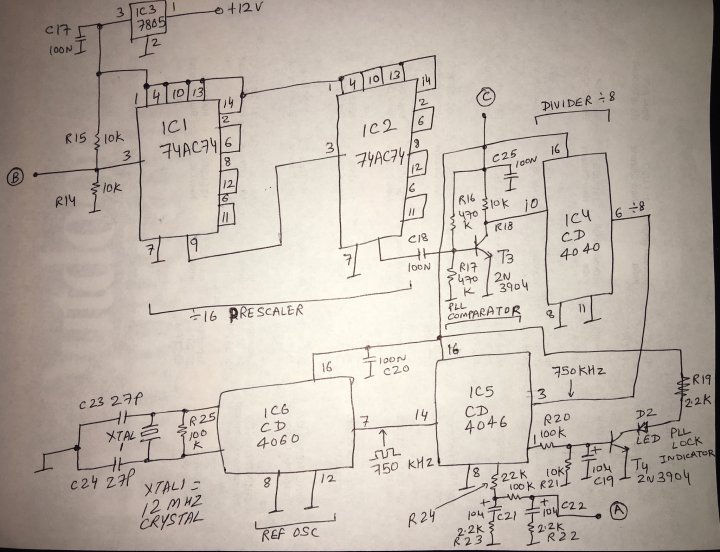 IC3
7805
3
1
2
+12V
C17
100N
1
4
10
13
14
2
6
8
12
6
11
IC1
74AC74
3
7
9
R15
10K
R14
10K
B
1
4
10
13
14
2
6
8
12
6
11
IC2
74AC74
3
7
C18
100N
÷16 PRESCALER
C
C25
100N
R16
470
K
10K
R18
R17
470
K
T3
2N
3904
DIVIDER ÷8
16
10
IC4
CD
4040
6 ÷8
8
11
PLL
COMPARATOR
16
100N
C20
16
IC6
CD
4060
7
8
12
REF OSC
C23 27P
XTAL
1
C24 27P
R25
100
K
XTAL1 =
12 MHZ
CRYSTAL
750 KHZ
14
IC5
CD
4046
3
8
750KHZ
R19
22K
D2
LED
PLL
LOCK
INDICATOR
R20
100K
10K
R21
10M
C19
T4
2N3904
R24
22K
100K
10M
C21
2.2K
R23
10M
C22
2.2K
R22
A